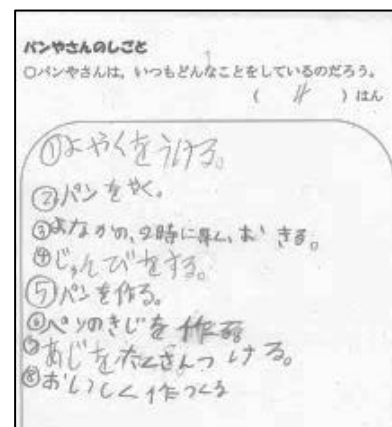 パンやさんのしごと
○パンやさんは、いつもどんなことをしているのだろう。
( 4 ) はん
①よやくをうける。
②パンをやく。
③よなかの、2時に早く、おきる。
④じゅんびをする。
⑤パンを作る。
⑥パンのきじを作る
⑦あじをたくさんつける。
⑧おいしく作つくる